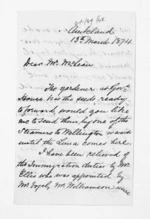 Auckland
13th March 1874
Dear Mr. McLean
The gardener at Govt
House has the seeds ready
forward would you like
me to send them by one of the
Steamers to Wellington or wait
until the Luna comes here.
I have been relieved of
the Immigration duties by Mr
Ellis who was appointed by
Mr Vogel, Mr Williamson